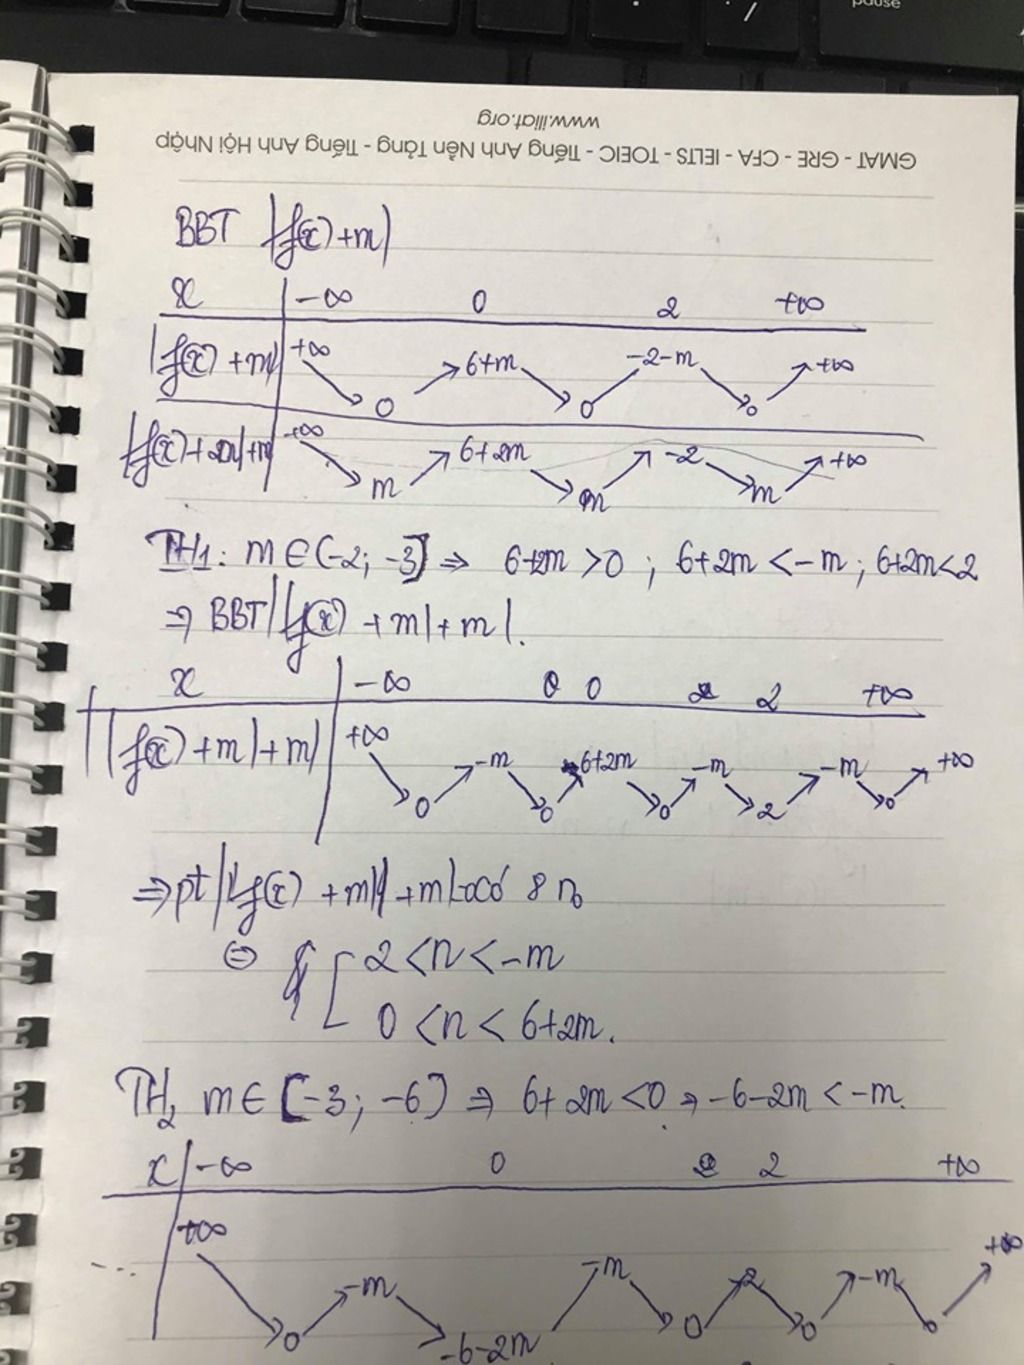 pause
www.iliat.org
GMAT - GRE - CFA - IELTS - TOEIC - Tiếng Anh Nền Tảng - Tiếng Anh Hội Nhập
BBT |f(x)+m|
x -∞ 0 2 +∞
|f(x)+m| +∞ 0 6+m 0 -2-m 0 +∞
+∞ m 6+2m m -2 m +∞
TH1: m∈(-2; -3] ⇒ 6+2m >0 ; 6+2m <-m ; 6+2m<2
⇒ BBT ||f(x)+m|+m|.
x -∞ 0 2 +∞
||f(x)+m|+m| +∞ 0 -m 0 6+2m 0 -m 2 -m 0 +∞
⇒ pt ||f(x)+m|+m| có 8 n
⇔ [ 2<n<-m
0<n<6+2m.
TH2 m∈[-3; -6] ⇒ 6+2m<0 ⇒ -6-2m<-m.
x -∞ 0 2 +∞
... +∞ 0 -m -6-2m -m 0 2 0 -m 0 +∞